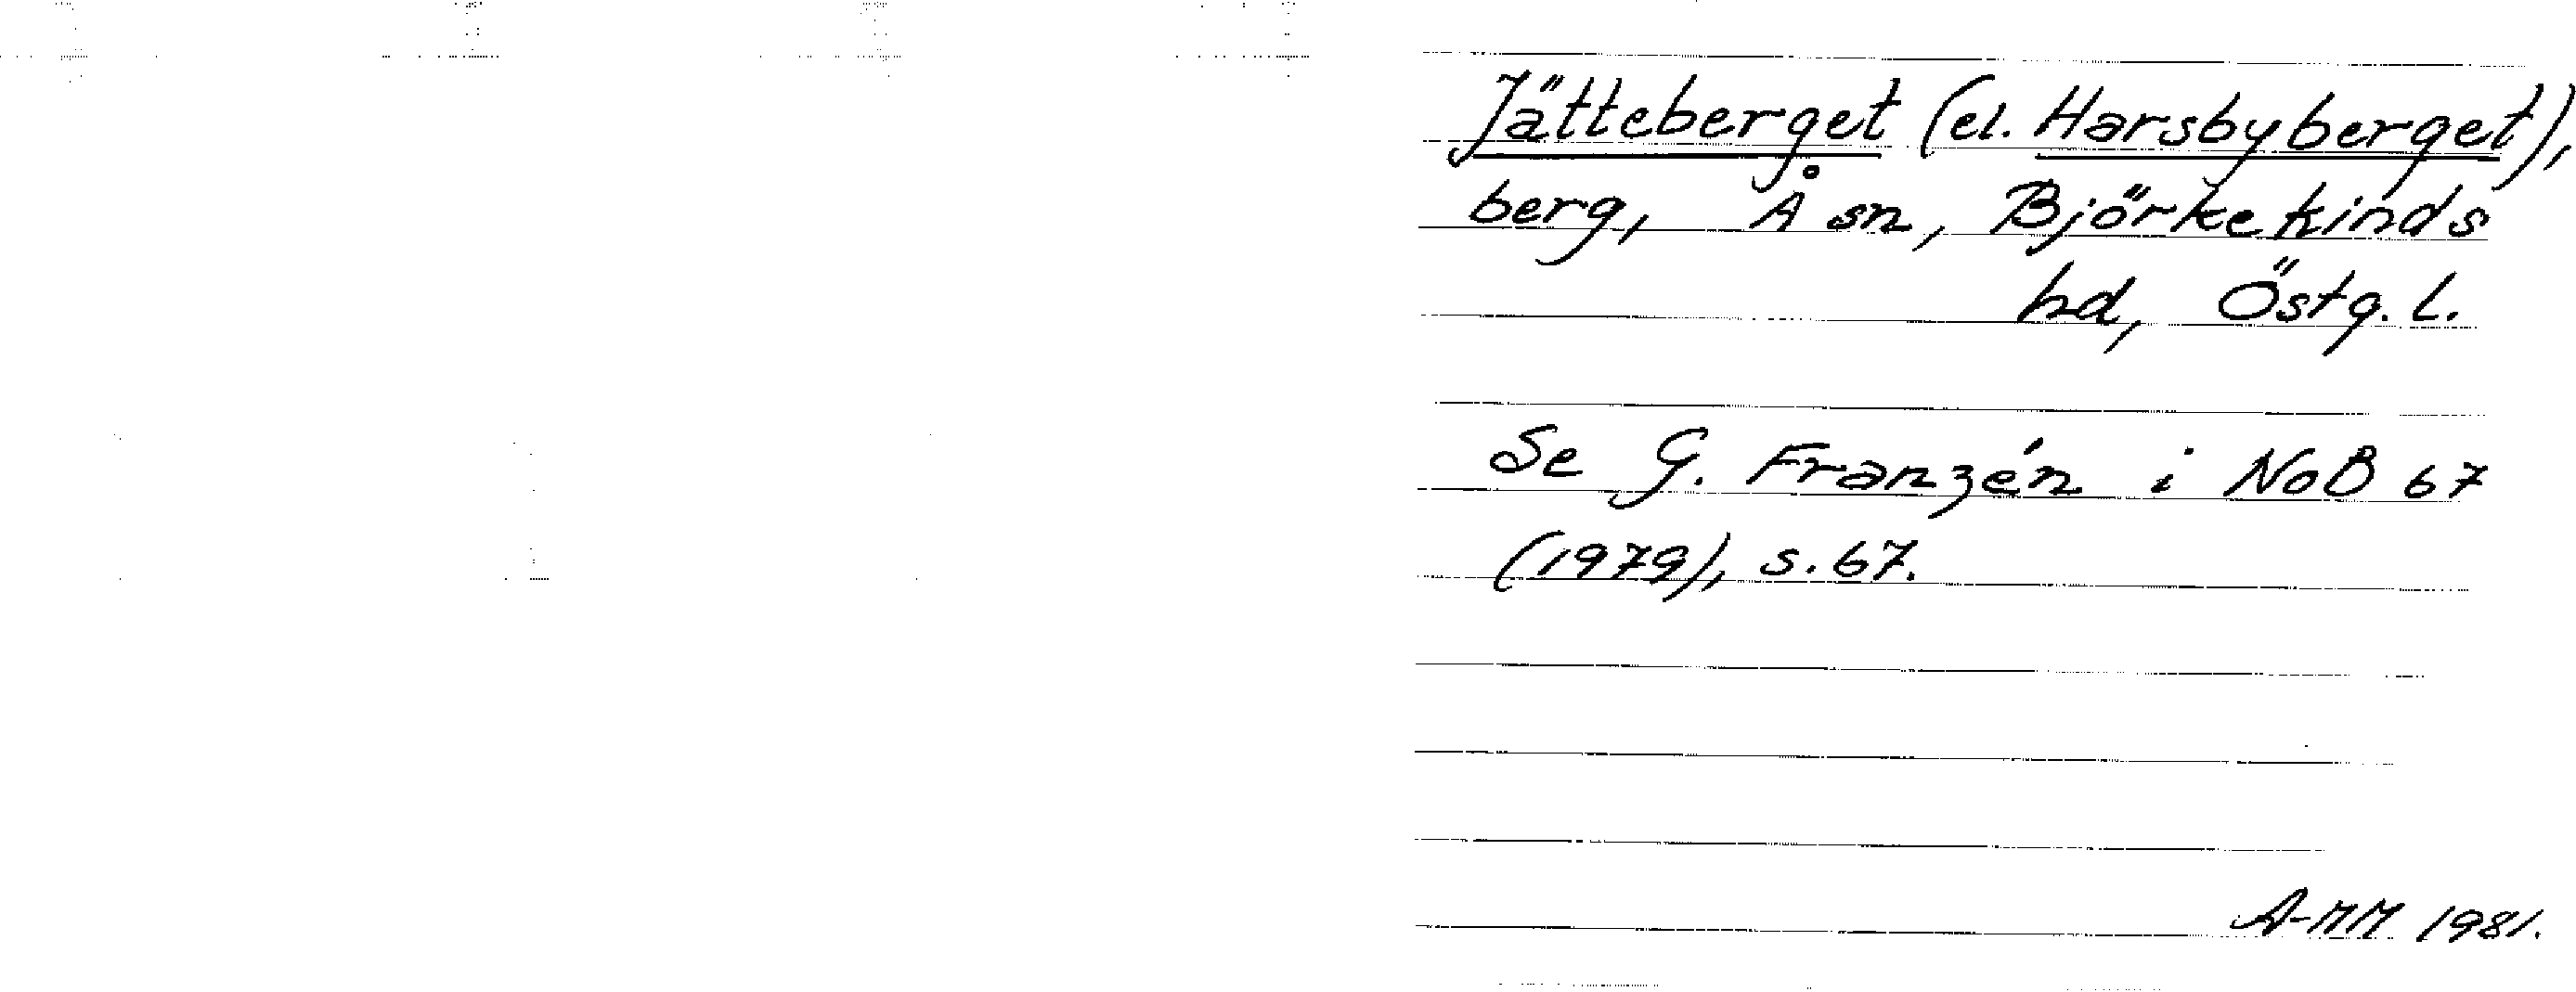 Jätteberget (el. Harsbyberget),
berg, Å sn, Björkekinds
hd, Östg. l.
Se G. Franzén i NoB 67
(1979), s. 67.
A-MM 1981.